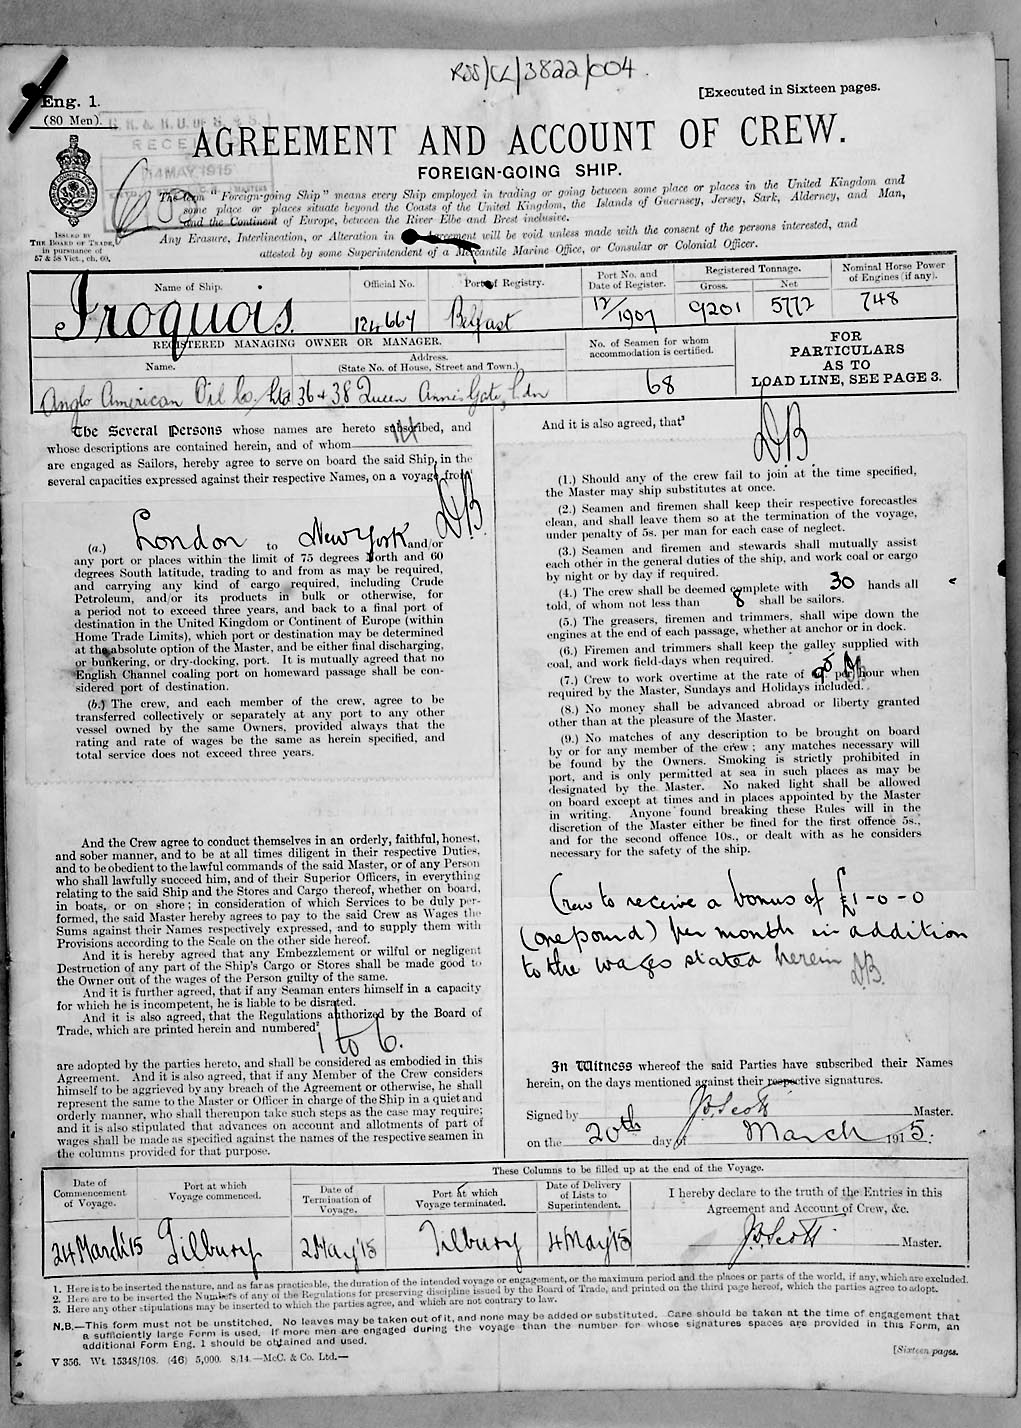 RSS/CL/3822/004.
[Executed in Sixteen pages.
Eng. 1.
(80 Men).
RECEI
14 MAY 1915
AGREEMENT AND ACCOUNT OF CREW.
FOREIGN-GOING SHIP.
The term "Foreign-going Ship" means every Ship employed in trading or going between some place or places in the United Kingdom and
some place or places situate beyond the Coasts of the United Kingdom, the Islands of Guernsey, Jersey, Sark, Alderney, and Man,
and the Continent of Europe, between the River Elbe and Brest inclusive.
Any Erasure, Interlineation, or Alteration in Agreement will be void unless made with the consent of the persons interested, and
attested by some Superintendent of a Mercantile Marine Office, or Consular or Colonial Officer.
ISSUED BY
THE BOARD OF TRADE,
in pursuance of
57 & 58 Vict., ch. 60.
Name of Ship. Official No. Port of Registry. Port No. and Date of Register. Registered Tonnage. Gross. Net Nominal Horse Power of Engines (if any).
Iroquois. 124667 Belfast 12/1907 9201 5772 748
REGISTERED MANAGING OWNER OR MANAGER.
Name. Address. (State No. of House, Street and Town.)
No. of Seamen for whom accommodation is certified.
FOR
PARTICULARS
AS TO
LOAD LINE, SEE PAGE 3.
Anglo American Oil Co. Ltd 36 & 38 Queen Annes Gate, Ldn 68
The Several Persons whose names are hereto subscribed, and
whose descriptions are contained herein, and of whom 14
are engaged as Sailors, hereby agree to serve on board the said Ship, in the
several capacities expressed against their respective Names, on a voyage from
D.B.
(a.) London to New York and/or
any port or places within the limit of 75 degrees North and 60
degrees South latitude, trading to and from as may be required,
and carrying any kind of cargo required, including Crude
Petroleum, and/or its products in bulk or otherwise, for
a period not to exceed three years, and back to a final port of
destination in the United Kingdom or Continent of Europe (within
Home Trade Limits), which port or destination may be determined
at the absolute option of the Master, and be either final discharging,
or bunkering, or dry-docking, port. It is mutually agreed that no
English Channel coaling port on homeward passage shall be con-
sidered port of destination.
(b.) The crew, and each member of the crew, agree to be
transferred collectively or separately at any port to any other
vessel owned by the same Owners, provided always that the
rating and rate of wages be the same as herein specified, and
total service does not exceed three years.
And the Crew agree to conduct themselves in an orderly, faithful, honest,
and sober manner, and to be at all times diligent in their respective Duties,
and to be obedient to the lawful commands of the said Master, or of any Person
who shall lawfully succeed him, and of their Superior Officers, in everything
relating to the said Ship and the Stores and Cargo thereof, whether on board,
in boats, or on shore; in consideration of which Services to be duly per-
formed, the said Master hereby agrees to pay to the said Crew as Wages the
Sums against their Names respectively expressed, and to supply them with
Provisions according to the Scale on the other side hereof.
And it is hereby agreed that any Embezzlement or wilful or negligent
Destruction of any part of the Ship's Cargo or Stores shall be made good to
the Owner out of the wages of the Person guilty of the same.
And it is further agreed, that if any Seaman enters himself in a capacity
for which he is incompetent, he is liable to be disrated.
And it is also agreed, that the Regulations authorized by the Board of
Trade, which are printed herein and numbered²
1 to 6.
are adopted by the parties hereto, and shall be considered as embodied in this
Agreement. And it is also agreed, that if any Member of the Crew considers
himself to be aggrieved by any breach of the Agreement or otherwise, he shall
represent the same to the Master or Officer in charge of the Ship in a quiet and
orderly manner, who shall thereupon take such steps as the case may require;
and it is also stipulated that advances on account and allotments of part of
wages shall be made as specified against the names of the respective seamen in
the columns provided for that purpose.
And it is also agreed, that³
D.B.
(1.) Should any of the crew fail to join at the time specified,
the Master may ship substitutes at once.
(2.) Seamen and firemen shall keep their respective forecastles
clean, and shall leave them so at the termination of the voyage,
under penalty of 5s. per man for each case of neglect.
(3.) Seamen and firemen and stewards shall mutually assist
each other in the general duties of the ship, and work coal or cargo
by night or by day if required.
(4.) The crew shall be deemed complete with 30 hands all
told, of whom not less than 8 shall be sailors.
(5.) The greasers, firemen and trimmers, shall wipe down the
engines at the end of each passage, whether at anchor or in dock.
(6.) Firemen and trimmers shall keep the galley supplied with
coal, and work field-days when required.
(7.) Crew to work overtime at the rate of 9d per hour when
required by the Master, Sundays and Holidays included.
(8.) No money shall be advanced abroad or liberty granted
other than at the pleasure of the Master.
(9.) No matches of any description to be brought on board
by or for any member of the crew; any matches necessary will
be found by the Owners. Smoking is strictly prohibited in
port, and is only permitted at sea in such places as may be
designated by the Master. No naked light shall be allowed
on board except at times and in places appointed by the Master
in writing. Anyone found breaking these Rules will in the
discretion of the Master either be fined for the first offence 5s.,
and for the second offence 10s., or dealt with as he considers
necessary for the safety of the ship.
Crew to receive a bonus of £1-0-0
(one pound) per month in addition
to the wages stated herein D.B.
In Witness whereof the said Parties have subscribed their Names
herein, on the days mentioned against their respective signatures.
Signed by J.D. Scott Master.
on the 20th day of March 1915.
These Columns to be filled up at the end of the Voyage.
Date of Commencement of Voyage. Port at which Voyage commenced. Date of Termination of Voyage. Port at which Voyage terminated. Date of Delivery of Lists to Superintendent.
I hereby declare to the truth of the Entries in this
Agreement and Account of Crew, &c.
24 March '15 Tilbury 2 May '15 Tilbury 4 May '15 J.D. Scott Master.
1. Here is to be inserted the nature, and as far as practicable, the duration of the intended voyage or engagement, or the maximum period and the places or parts of the world, if any, which are excluded.
2. Here are to be inserted the Numbers of any of the Regulations for preserving discipline issued by the Board of Trade, and printed on the third page hereof, which the parties agree to adopt.
3. Here any other stipulations may be inserted to which the parties agree, and which are not contrary to law.
N.B.—This form must not be unstitched. No leaves may be taken out of it, and none may be added or substituted. Care should be taken at the time of engagement that
a sufficiently large Form is used. If more men are engaged during the voyage than the number for whose signatures spaces are provided in this Form, an
additional Form Eng. 1 should be obtained and used.
V 356. Wt. 15348/108. (46) 5,000. 8/14.—McC. & Co. Ltd.—
[Sixteen pages.